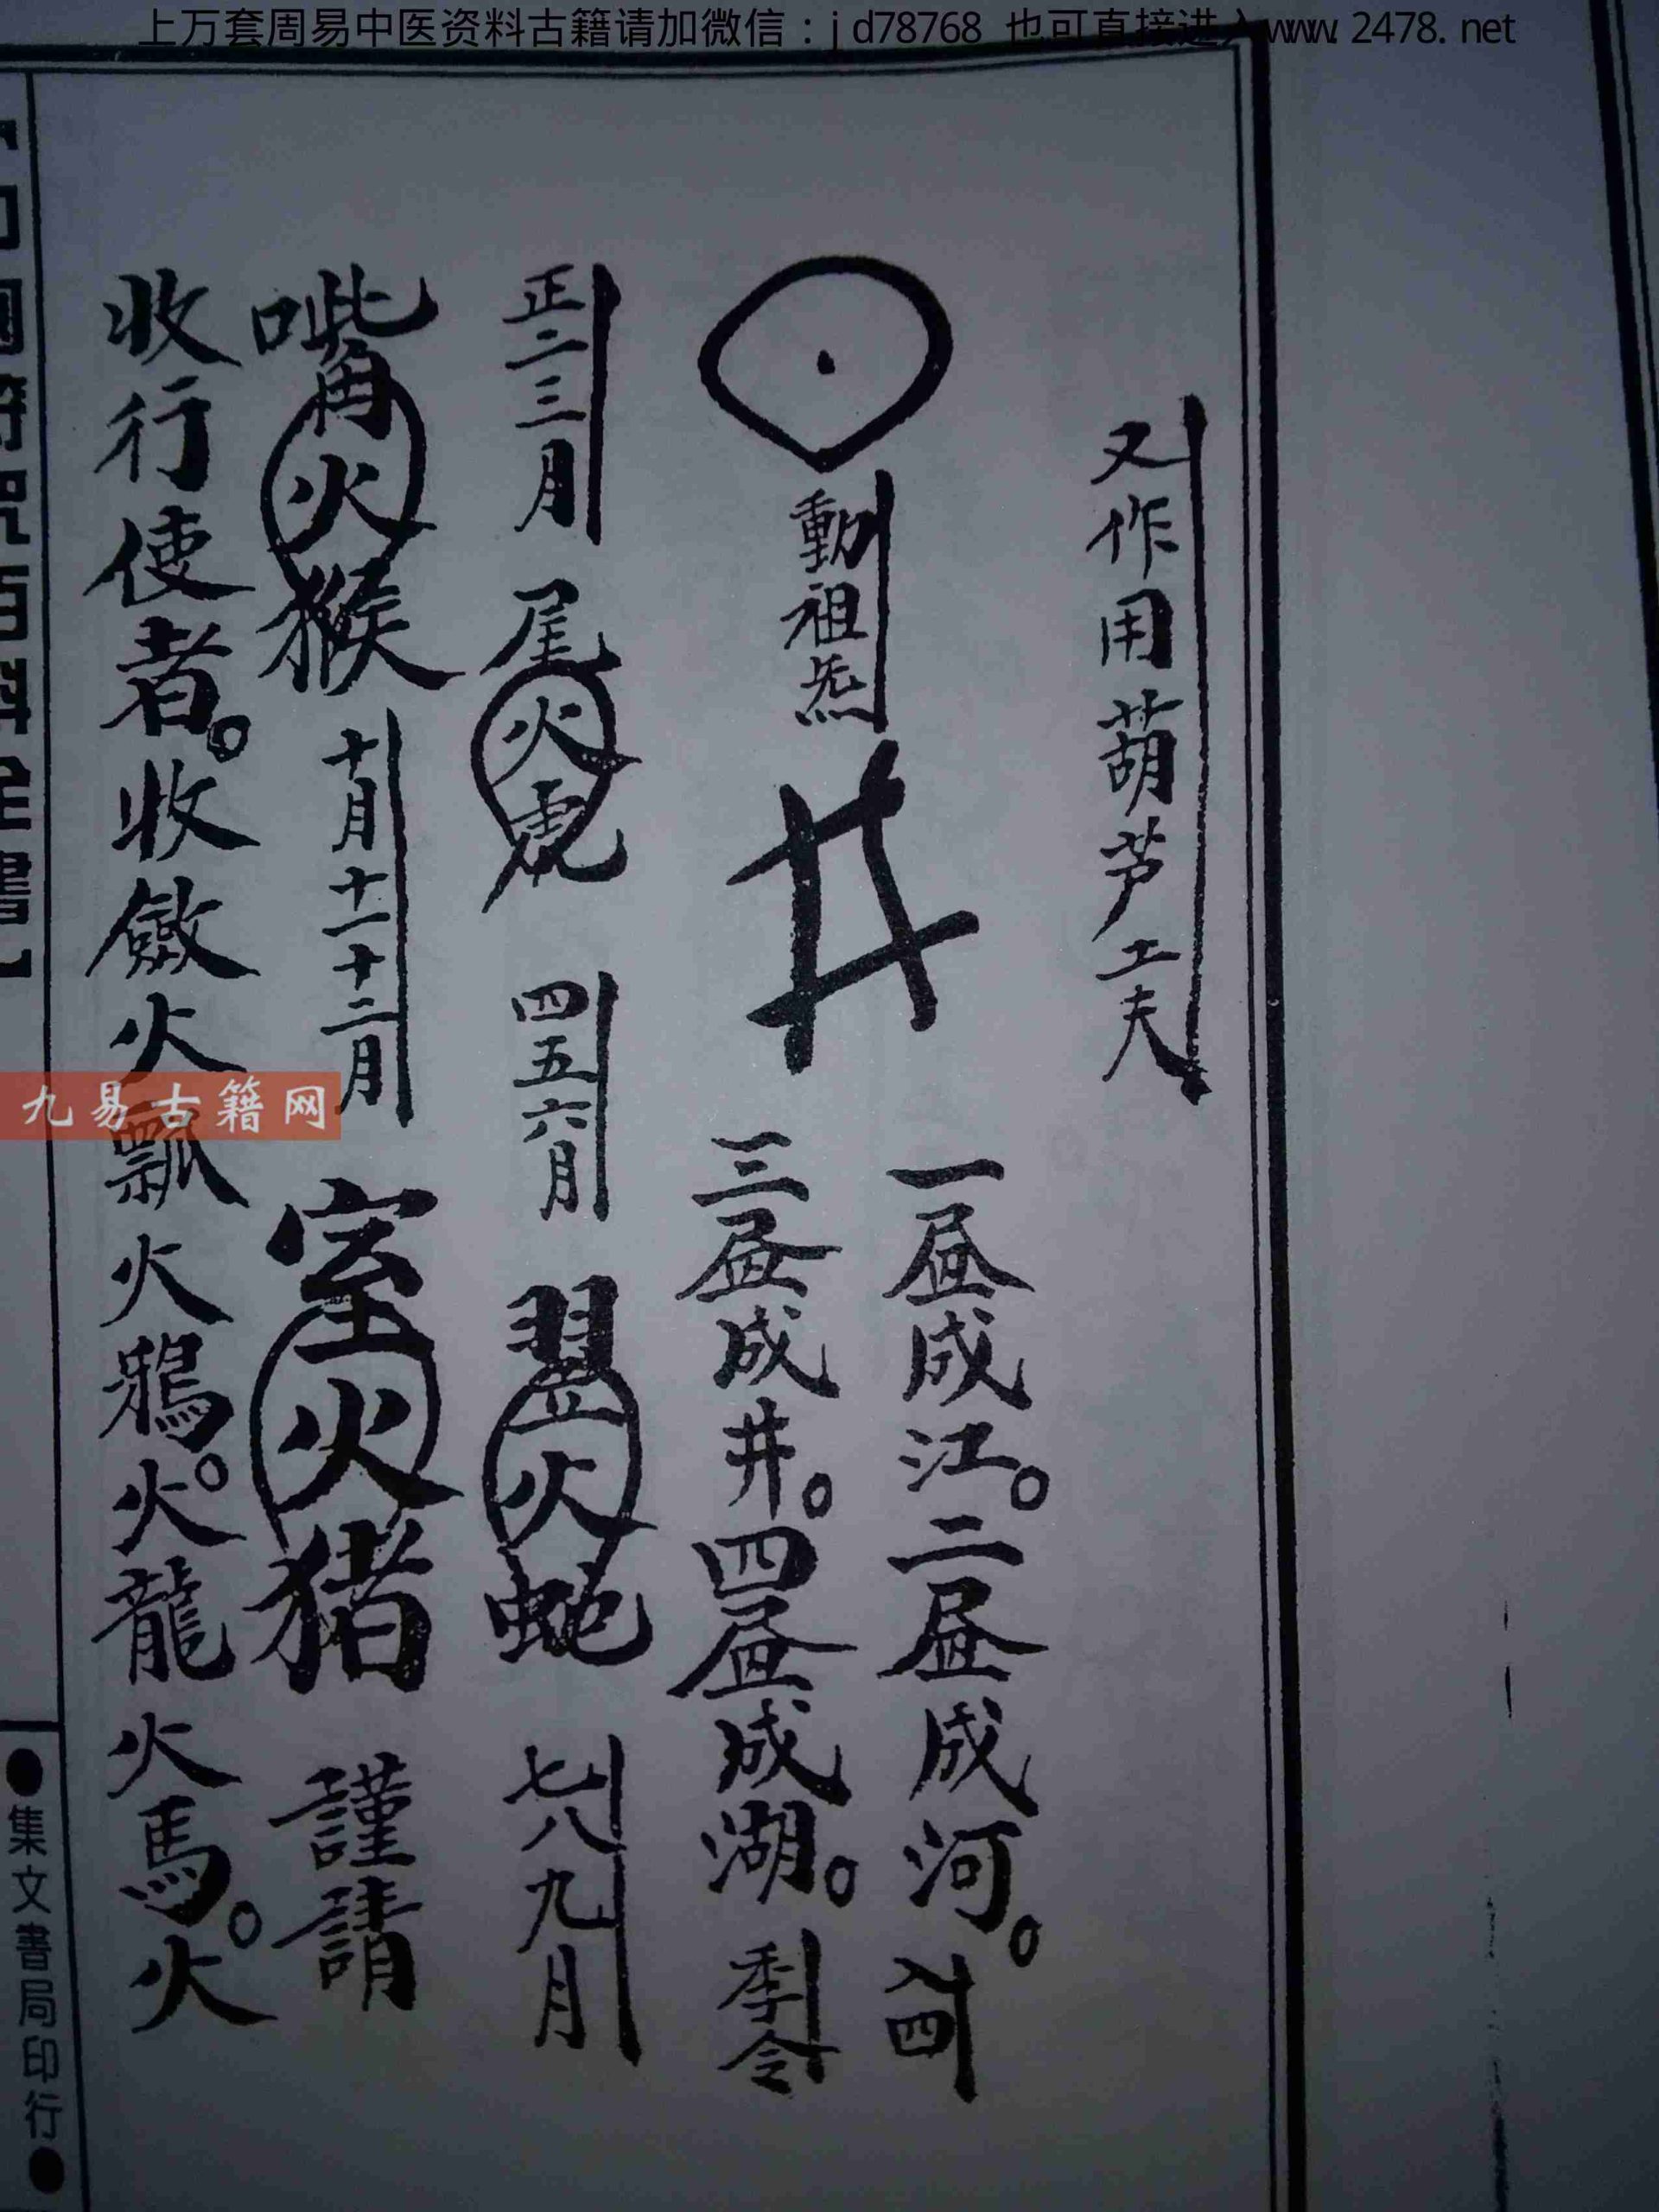 上万套周易中医资料古籍请加微信：jd78768 也可直接进入www.2478.net
又作用葫芦工夫
一昼成江。二昼成河。入四
動祖炁
三昼成井。四昼成湖。季令
正二三月 尾火虎 四五六月 翌火蛇 七八九月
嘴火猴 十月十一十二月 室火猪 謹請
收行使者。收斂火瓢火鴉。火龍火馬。火
九易古籍网
國符咒百科全書】
●集文書局印行●